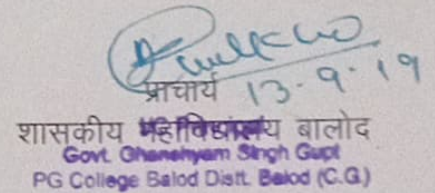 प्राचार्य 13.9.19
शासकीय महाविद्यालय बालोद
Govt. Ghanshyam Singh Gupt
PG College Balod Distt. Balod (C.G.)